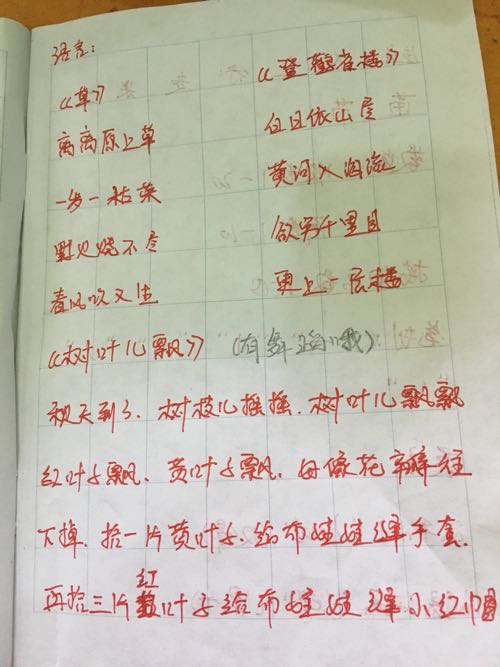 语言:
《草》
离离原上草
一岁一枯荣
野火烧不尽
春风吹又生
《登鹳雀楼》
白日依山尽
黄河入海流
欲穷千里目
更上 层楼
《树叶儿飘》 (有舞蹈哦)
秋天到了、树枝儿摇摇、树叶儿飘飘
红叶子飘、黄叶子飘、好像花瓣往
下掉、拾一片黄叶子、给布娃娃缝手套、
再拾三片红叶子给布娃娃缝小红帽